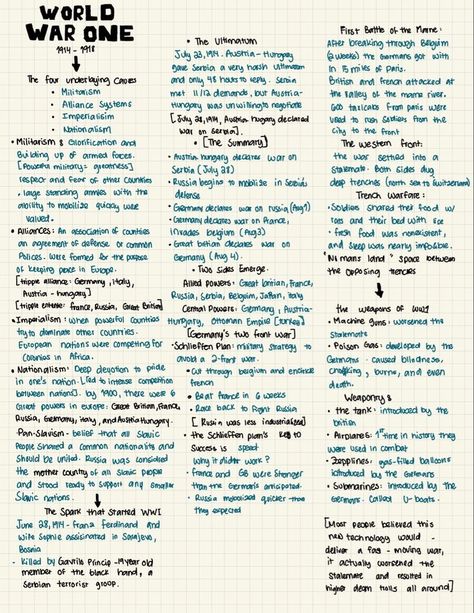 WORLD
WAR ONE
1914 - 1918
The four underlying causes
• Militarism
• Alliance Systems
• Imperialisim
• Nationalism
• Militarism & Glorification and
Building up of armed forces.
[Powerful military = greatness]
respect and fear of other countries
. large standing armies with the
ability to mobilize quickly were
valued.
• Alliances: An association of countries
an agreement of defense or common
Polices. Were formed for the purpose
of keeping peace in Europe.
[tripple alliance: Germany, Italy,
Austria-hungary]
[tripple entente: france, Russia, Great Britian]
• Imperialism: When powerful countries
try to dominate other countries.
European nations were competing for
Colonies in Africa.
• Nationalism: Deep devotion to pride
in one's nation. [Led to intense competition
between nations]. by 1900, there were 6
Great powers in europe: Great Britian, France,
Russia, Germany, italy, and Austria Hungary.
Pan-Slavism - belief that all Slavic
People shared a common nationality and
Should be united. Russia was considered
the mother country of all slavic people
and stood ready to support any smaller
Slavic nations.
The Spark that started WWI
June 28, 1914 - Franz Ferdinand and
wife Sophie assisinated in Sarajevo,
Bosnia
- killed by Gavrilo Princip - 19 year old
member of the black hand, a
Serbian terrorist group.
• The Ultimatum
July 23, 1914. Austria-Hungary
gave Serbia a very harsh ultimatum
and only 48 hours to reply. Serbia
met 11/12 demands, but Austria-
Hungary was unwilling to negotiate
[July 28, 1914, Austria hugary declared
war on Serbia].
[The Summary]
• Austria hungary declares war on
Serbia (July 28)
• Russia begins to mobilize in Serbia's
defense
• Germany declares war on russia (Aug 1)
• Germany declares war on France,
invades belgium (Aug 3)
• Great britian declares war on
Germany (Aug 4).
• Two sides Emerge.
Allied powers: Great britian, France,
Russia, Serbia, Belgium, Japan, Italy
Central Powers: Germany, Austria-
Hungary, Ottoman Empire [turkey]
[Germany's two front war]
-Schlieffen Plan: military strategy to
avoid a 2-front war.
• Cut through belgium and encircle
french
• Beat france in 6 weeks
• Race back to fight Russia
[Russia was less industrialised]
• the Schlieffen plan's key to
Success is speed
Why it didn't work?
• France and GB were stronger
than the Germans anticipated.
• Russia mobilized quicker than
they expected
First Battle of the Marne:
After breaking through Belgium
(2 weeks) the Germans got with
in 15 miles of Paris.
British and french attacked at
the Valley of the marne river.
600 taxicabs from paris were
used to rush soldiers from the
city to the front
The western front:
the war settled into a
Stalemate. Both sides dug
deep trenches (north sea to Switzerland)
Trench warfare:
• Soldiers shared their food w/
rats and their bed with
• fresh food was nonexistent,
and sleep was nearly impossible.
"No mans land" Space between
the opposing trenches
the weapons of WWI
• Machine guns: worsened the
Stalemate
• Poison Gas: developed by the
Germans. Caused blindness,
choking, burns, and even
death.
Weaponry &
• the tank: introduced by the
british
• Airplanes: 1st time in history they
were used in combat
• Zepplines: gas-filled balloons
introduced by the Germans
• Submarines: introduced by the
Germans. Called U-boats.
[Most people believed this
new technology would
deliver a fast-moving war,
it actually worsened the
Stalemate and resulted in
higher death tolls all around]